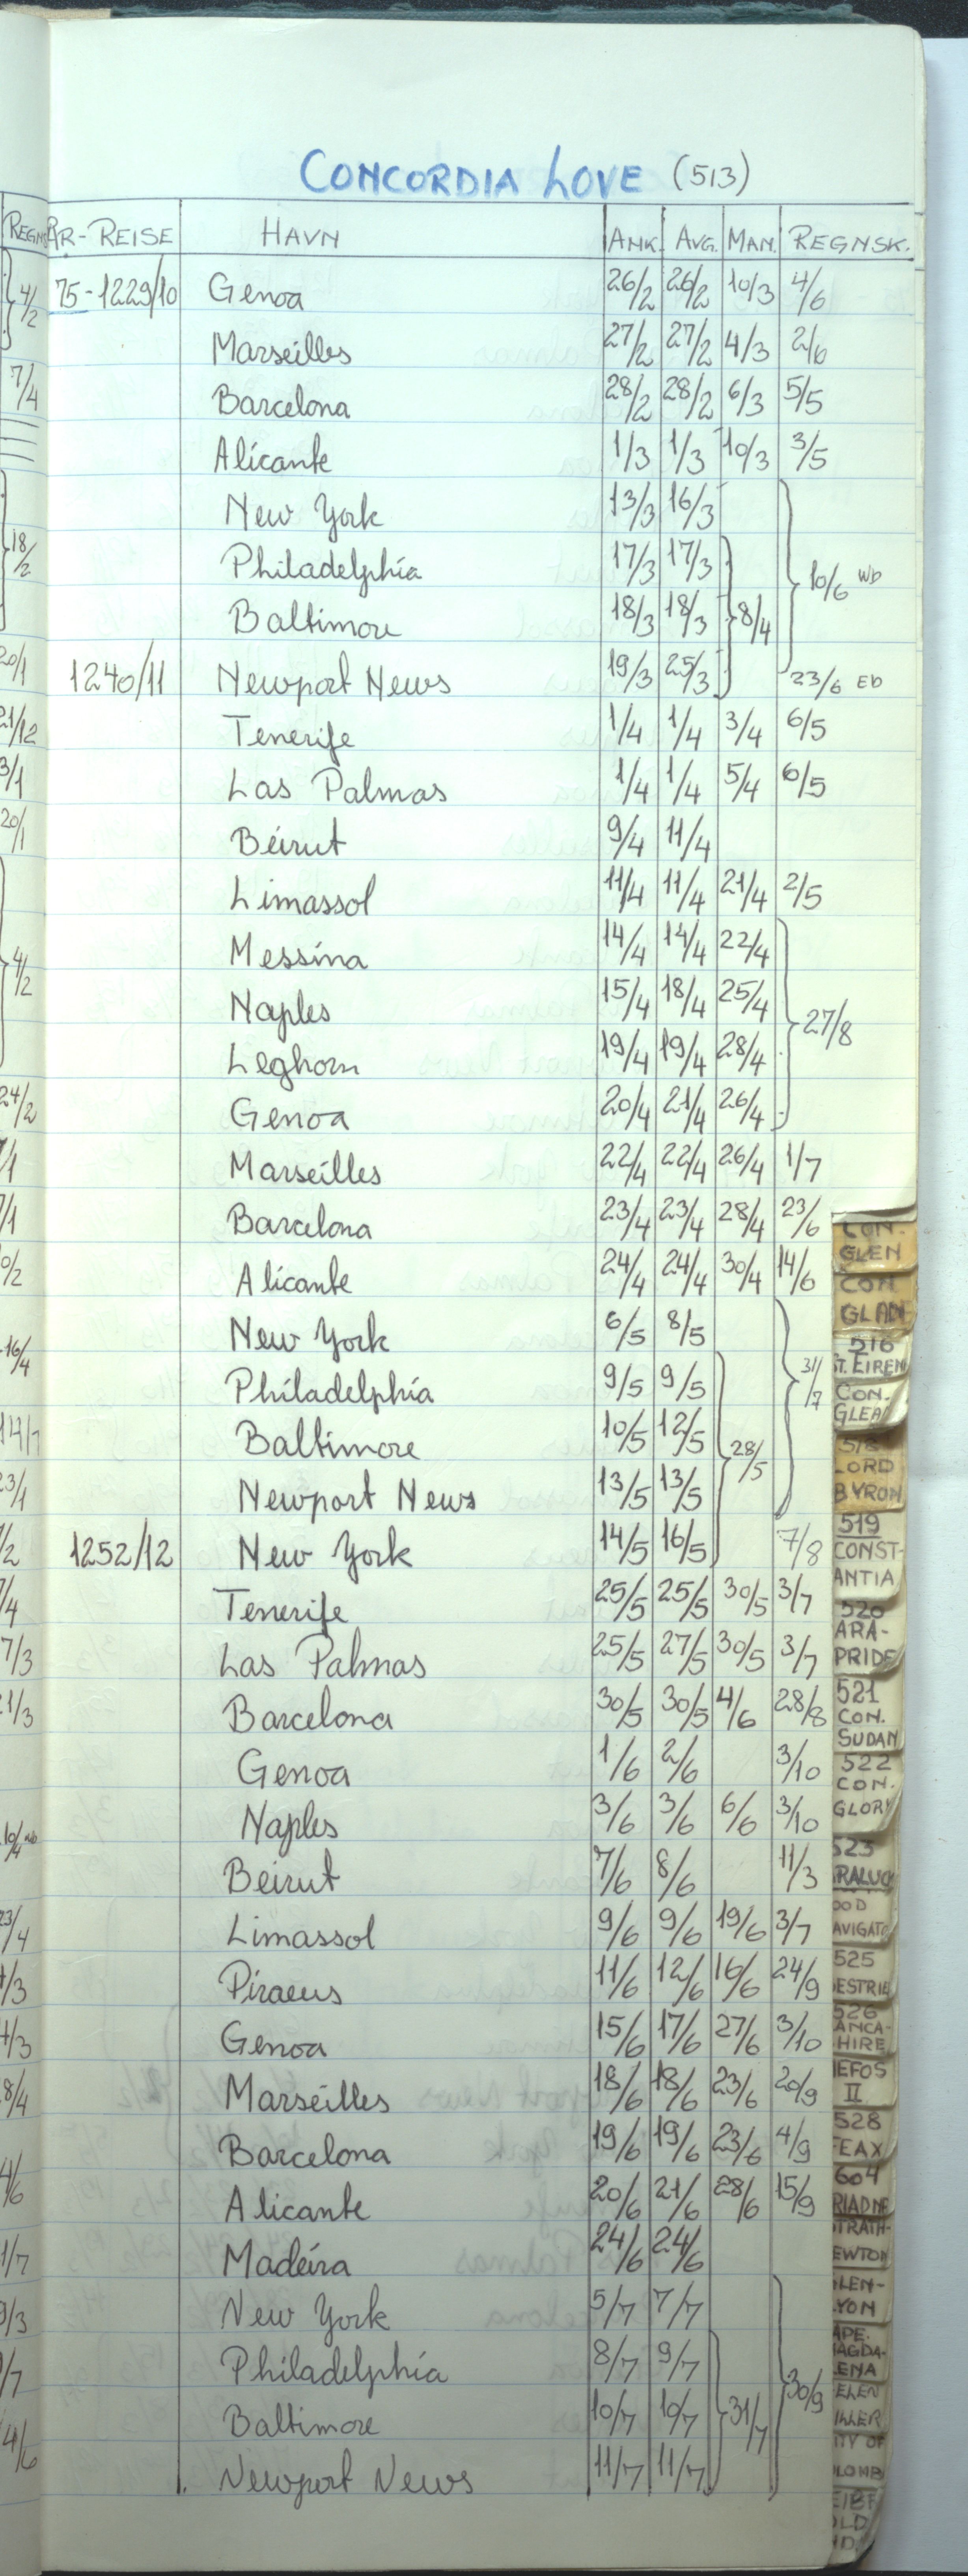 CONCORDIA LOVE (513)
REGNS ÅR-REISE HAVN ANK. AVG. MAN. REGNSK.
75-1229/10 Genoa 26/2 26/2 10/3 4/6
Marseilles 27/2 27/2 4/3 2/6
Barcelona 28/2 28/2 6/3 5/5
Alicante 1/3 1/3 10/3 3/5
New York 13/3 16/3
Philadelphia 17/3 17/3
10/6 WB
Baltimore 18/3 18/3 8/4
1240/11 Newport News 19/3 25/3 23/6 EB
Tenerife 1/4 1/4 3/4 6/5
Las Palmas 1/4 1/4 5/4 6/5
Beirut 9/4 11/4
Limassol 11/4 11/4 21/4 2/5
Messina 14/4 14/4 22/4
Naples 15/4 18/4 25/4
27/8
Leghorn 19/4 19/4 28/4
Genoa 20/4 21/4 26/4
Marseilles 22/4 22/4 26/4 1/7
Barcelona 23/4 23/4 28/4 23/6
Alicante 24/4 24/4 30/4 14/6
New York 6/5 8/5
Philadelphia 9/5 9/5 31/7
Baltimore 10/5 12/5 28/5
Newport News 13/5 13/5
1252/12 New York 14/5 16/5 7/8
Tenerife 25/5 25/5 30/5 3/7
Las Palmas 25/5 27/5 30/5 3/7
Barcelona 30/5 30/5 4/6 28/8
Genoa 1/6 2/6 3/10
Naples 3/6 3/6 6/6 3/10
Beirut 7/6 8/6 11/3
Limassol 9/6 9/6 19/6 3/7
Piraeus 11/6 12/6 16/6 24/9
Genoa 15/6 17/6 27/6 3/10
Marseilles 18/6 18/6 23/6 20/9
Barcelona 19/6 19/6 23/6 4/9
Alicante 20/6 21/6 28/6 15/9
Madeira 24/6 24/6
New York 5/7 7/7
Philadelphia 8/7 9/7
30/9
Baltimore 10/7 10/7 31/7
Newport News 11/7 11/7
4/2
7/4
18/2
20/1
21/12
3/1
20/1
4/2
24/2
16/4
23/1
7/3
23/4
8/4
CON.
GLEN
CON
GLADE
516
ST. EIREN
CON.
GLEA
518
LORD
BYRON
519
CONST-
ANTIA
520
ARA-
PRIDE
521
CON.
SUDAN
522
CON.
GLORY
523
RALUC
OOD
AVIGATO
525
ESTRIE
526
ANCA-
HIRE
EFOS
II
528
FEAX
604
RIADNE
STRATH-
EWTON
LEN-
LYON
APE.
AGDA-
LENA
ELEN
ILLER
ITY OF
LOMB